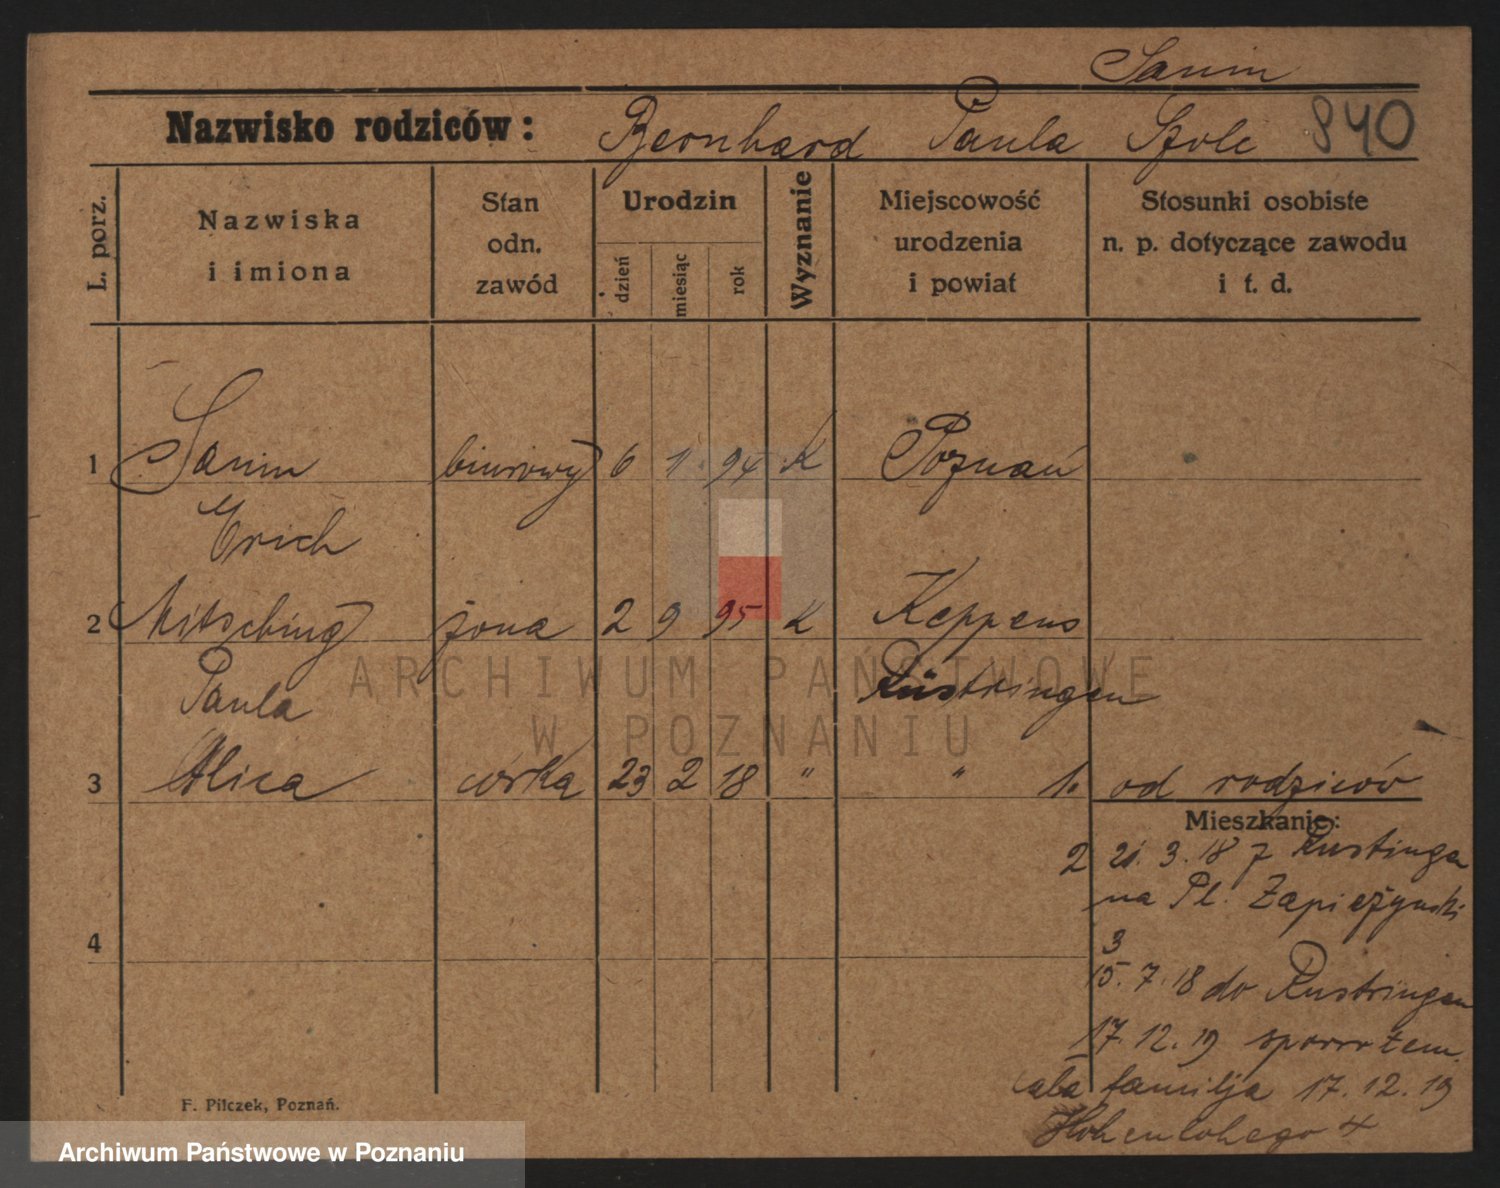 Sanin
Nazwisko rodziców: Bernhard Paula Szolc 840
L. porz.
Nazwiska i imiona
Stan odn. zawód
Urodzin
dzień
miesiąc
rok
Wyznanie
Miejscowość urodzenia i powiat
Stosunki osobiste n. p. dotyczące zawodu i t. d.
1 Sanin biurowy 6 1. 94 K Poznań
Erich
2 Mitsching żona 2 9 95 K Heppens
Paula Rüstringen
3 Alica córka 23 2 18 " " 1. od rodziców
Mieszkanie:
2 21. 3. 18 z Rustringen
na Pl. Zapieżynski
4
3
15. 7. 18 do Rustringen
17. 12. 19
cała familja 17. 12. 19
Hohenlohego 4
F. Pilczek, Poznań.
ARCHIWUM PAŃSTWOWE
W POZNANIU
Archiwum Państwowe w Poznaniu